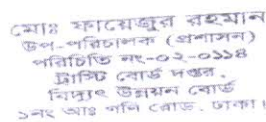 মোঃ ফায়েজুর রহমান
উপ-পরিচালক (প্রশাসন)
পরিচিতি নং-০২-০১১৪
ট্রাস্টি বোর্ড দপ্তর,
বিদ্যুৎ উন্নয়ন বোর্ড
১নং আঃ গনি রোড, ঢাকা।